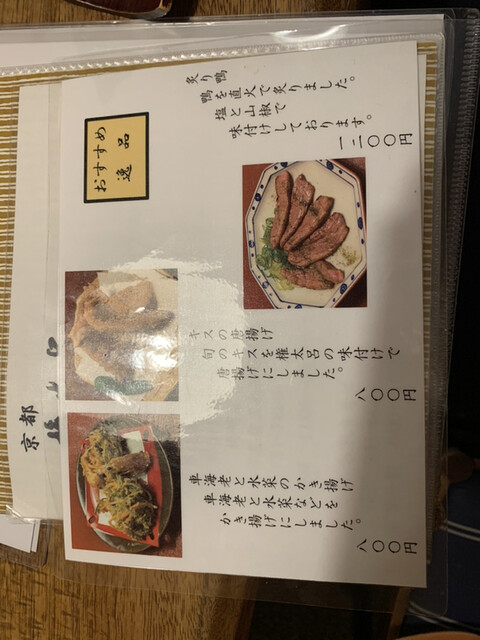 おすすめ
逸品
炙り鴨
鴨を直火で炙りました。
塩と山椒で
味付けしております。
一二〇〇円
キスの唐揚げ
旬のキスを権太呂の味付けで
唐揚げにしました。
八〇〇円
車海老と水菜のかき揚げ
車海老と水菜などを
かき揚げにしました。
八〇〇円
京都